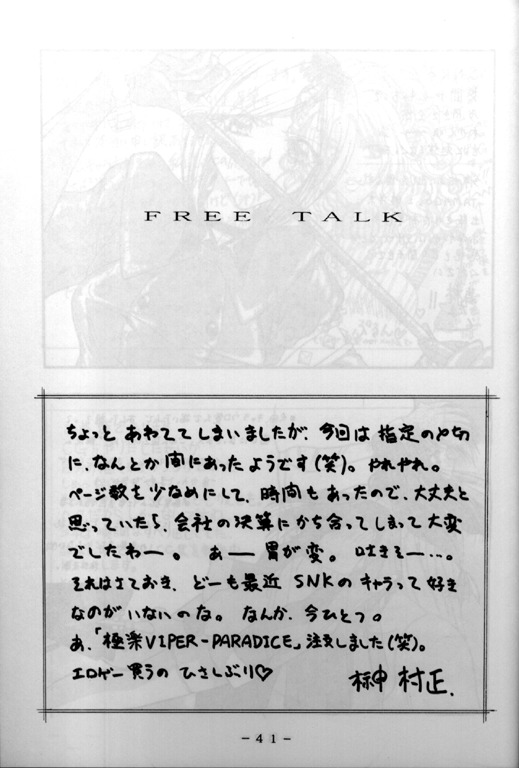 FREE TALK
ちょっと あわててしまいましたが、今回は 指定の〆切
に、なんとか 間にあったようです(笑)。やれやれ。
ページ数を少なめにして、時間もあったので、大丈夫と
思っていたら、会社の決算にかち合ってしまって大変
でしたわー。 あー 胃が変。 吐きそー…。
それはさておき、どーも最近 SNKのキャラって好き
なのがいないのな。 なんか、今ひとつ。
あ、「極楽VIPER-PARADICE」注文しました(笑)。
エロゲー買うの ひさしぶり♡
榊 村正.
-41-